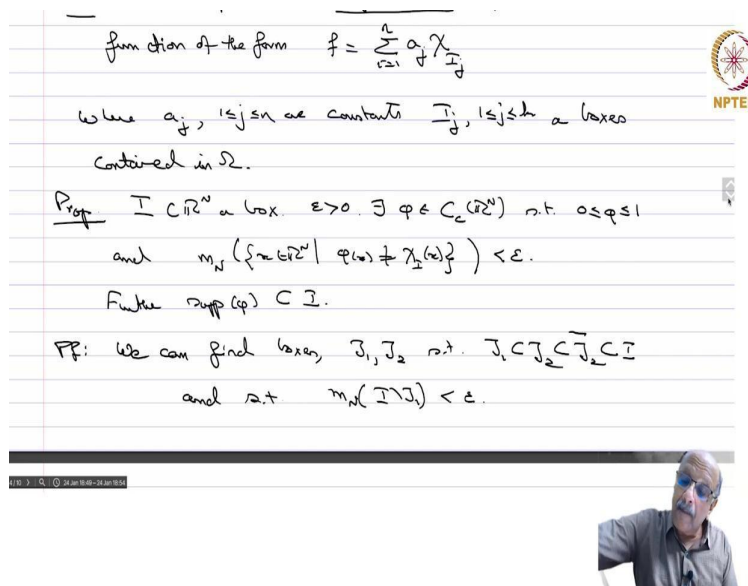 function of the form f = Σ_{i=1}^{n} a_j χ_{I_j}
NPTE
where a_j, 1≤j≤n are constants I_j, 1≤j≤n a boxes
contained in Ω.
Prop. I ⊂ ℝ^N a box. ε>0. ∃ φ ∈ C_c(ℝ^N) s.t. 0≤φ≤1
and m_N({x∈ℝ^N | φ(x) ≠ χ_I(x)}) < ε.
Further supp(φ) ⊂ I.
Pf: We can find boxes, J_1, J_2 s.t. J_1 ⊂ J_2 ⊂ \overline{J_2} ⊂ I
and s.t. m_N(I\J_1) < ε.
24 Jan 16:49 - 24 Jan 16:54